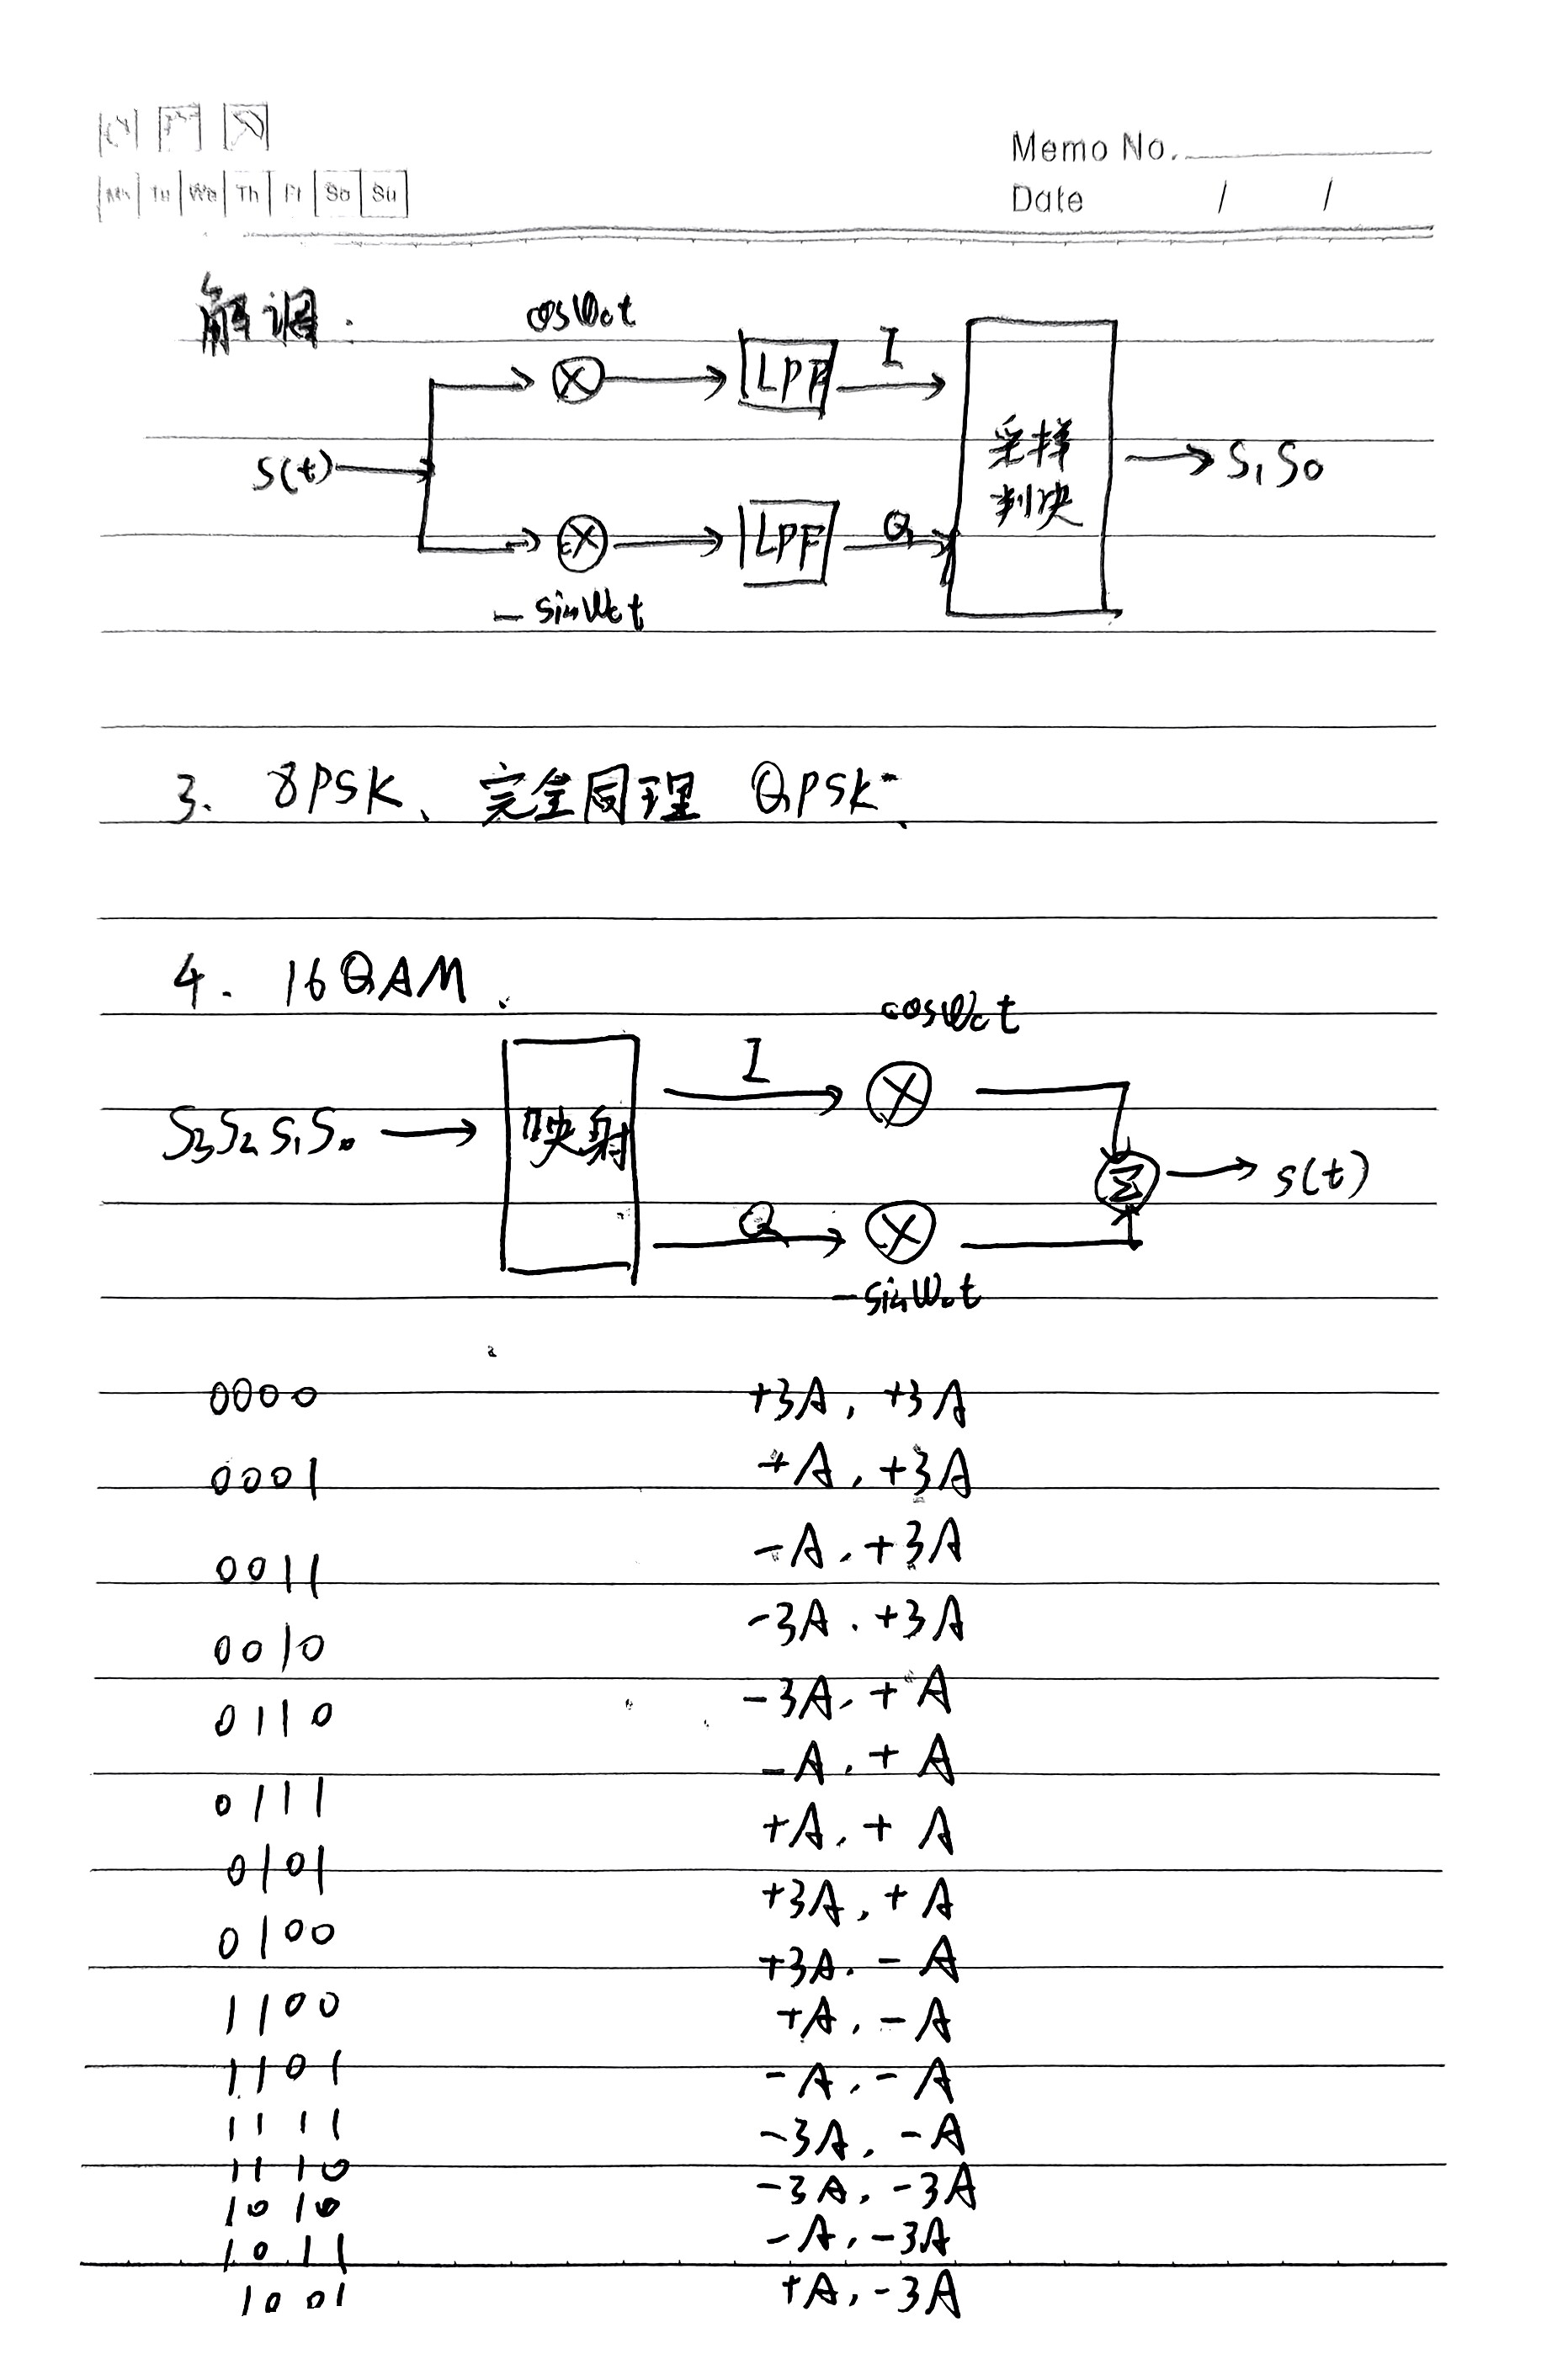 Memo No.
Mo Tu We Th Fr Sa Su
Date / /
解调.
cosω₀t
I
LPF
采样
判决
S(t)
S₁S₀
LPF
Q
-sinω₀t
3. 8PSK、完全同理 QPSK.
4. 16QAM.
cosω₀t
I
S₃S₂S₁S₀
映射
Σ
s(t)
Q
-sinω₀t
0000 +3A, +3A
0001 +A, +3A
0011 -A, +3A
0010 -3A, +3A
0110 -3A, +A
0111 -A, +A
0101 +A, +A
0100 +3A, +A
1100 +3A, -A
1101 +A, -A
1111 -A, -A
1110 -3A, -A
1010 -3A, -3A
1011 -A, -3A
1001 +A, -3A